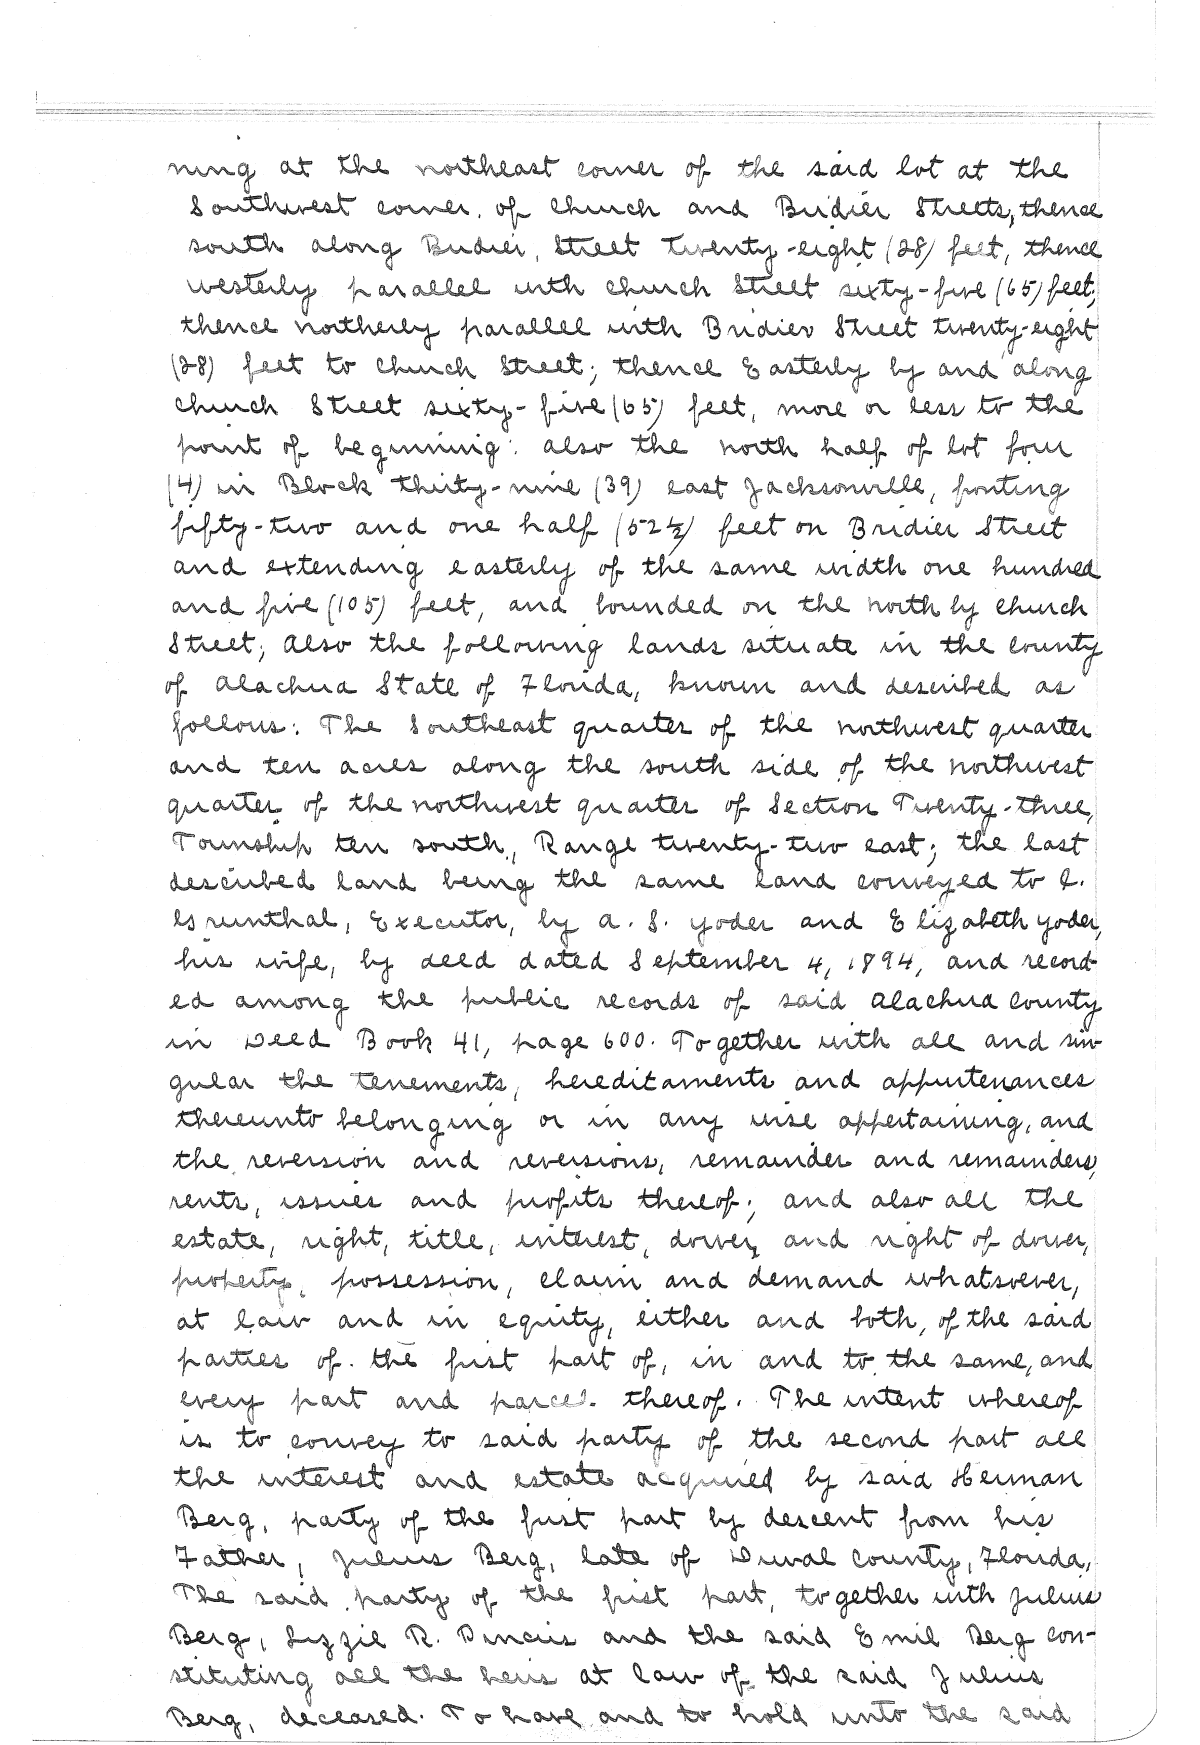 ning at the northeast corner of the said lot at the
Southwest corner of Church and Bridier Streets, thence
south along Bridier, Street twenty-eight (28) feet, thence
westerly parallel with Church Street sixty-five (65) feet,
thence northerly parallel with Bridier Street twenty-eight
(28) feet to Church Street; thence Easterly by and along
Church Street sixty-five (65) feet, more or less to the
point of beginning: also the north half of lot four
(4) in Block thirty-nine (39) east Jacksonville, fronting
fifty-two and one half (52½) feet on Bridier Street
and extending easterly of the same width one hundred
and five (105) feet, and bounded on the north by Church
Street; Also the following lands situate in the County
of Alachua State of Florida, known and described as
follows: The Southeast quarter of the northwest quarter
and ten acres along the south side of the northwest
quarter of the northwest quarter of Section Twenty-three,
Township ten south, Range twenty-two east; the last
described land being the same land conveyed to
Executor, by A. S. Yoder and Elizabeth Yoder,
his wife, by deed dated September 4, 1894, and record-
ed among the public records of said Alachua County
in Deed Book 41, page 600. Together with all and sin-
gular the tenements, hereditaments and appurtenances
thereunto belonging or in any wise appertaining, and
the reversion and reversions, remainder and remainders,
rents, issues and profits thereof; and also all the
estate, right, title, interest, dower, and right of dower,
property, possession, claim and demand whatsoever,
at law and in equity, either and both, of the said
parties of the first part of, in and to the same, and
every part and parcel thereof. The intent whereof
is to convey to said party of the second part all
the interest and estate acquired by said Herman
Berg, party of the first part by descent from his
Father, Julius Berg, late of Duval County, Florida,
The said party of the first part, together with Julius
Berg, Lizzie R. and the said Emil Berg con-
stituting all the heirs at law of the said Julius
Berg, deceased. To have and to hold unto the said